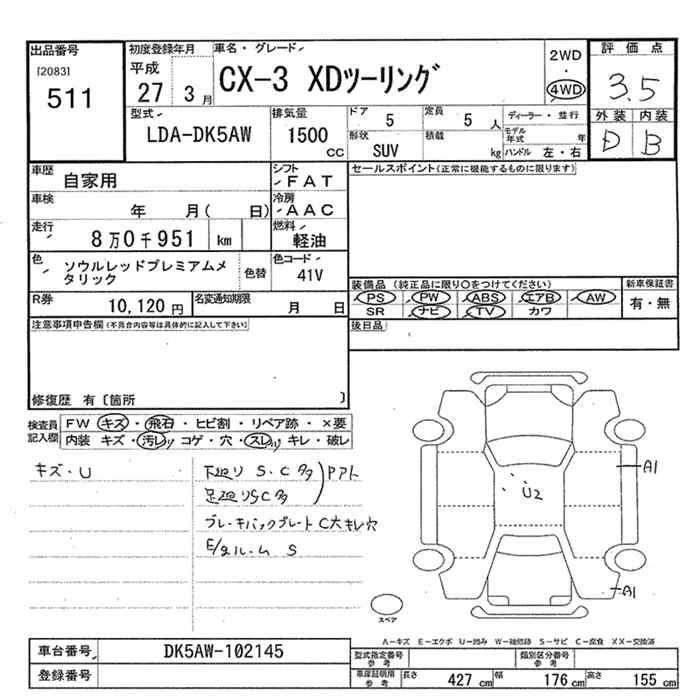 出品番号
[2083]
511
初度登録年月
平成
27 3月
車名・グレード
CX-3 XDツーリング
2WD
・
4WD
評価点
3.5
外装 内装
D B
型式
LDA-DK5AW
排気量
1500
CC
ドア
5
定員
5人
形状
SUV
積載
kg
ディーラー・並行
モデル年式 年
ハンドル 左・右
車歴
自家用
シフト
FAT
車検
年 月( 日)
冷房
AAC
走行
8万0千951 km
燃料
軽油
色
ソウルレッドプレミアムメタリック
色替
色コード
41V
R券
10,120円
名変通知期限
月 日
セールスポイント(正常に機能するものに限ります)
装備品 (純正品に限り○をつけてください)
PS PW ABS エアB AW
SR ナビ TV カワ
新車保証書
有・無
後日品
注意事項申告欄(不具合内容等は具体的に記入して下さい)
修復歴 有〔箇所 〕
検査員記入欄
FW キズ・飛石・ヒビ割・リペア跡・×要
内装 キズ・汚レ・コゲ・穴・スレ・キレ・破レ
キズ・U
下廻り S.C多
足廻り S.C多
ブレーキバックプレート C大 キレ穴
E/gルーム S
U2
A1
A1
スペア
A-キズ E-エクボ U-凹み W-補修跡 S-サビ C-腐食 XX-交換済
車台番号
DK5AW-102145
登録番号
型式指定番号
参考
類別区分番号
参考
車庫証明用
参考
長さ 427cm
幅 176cm
高さ 155cm